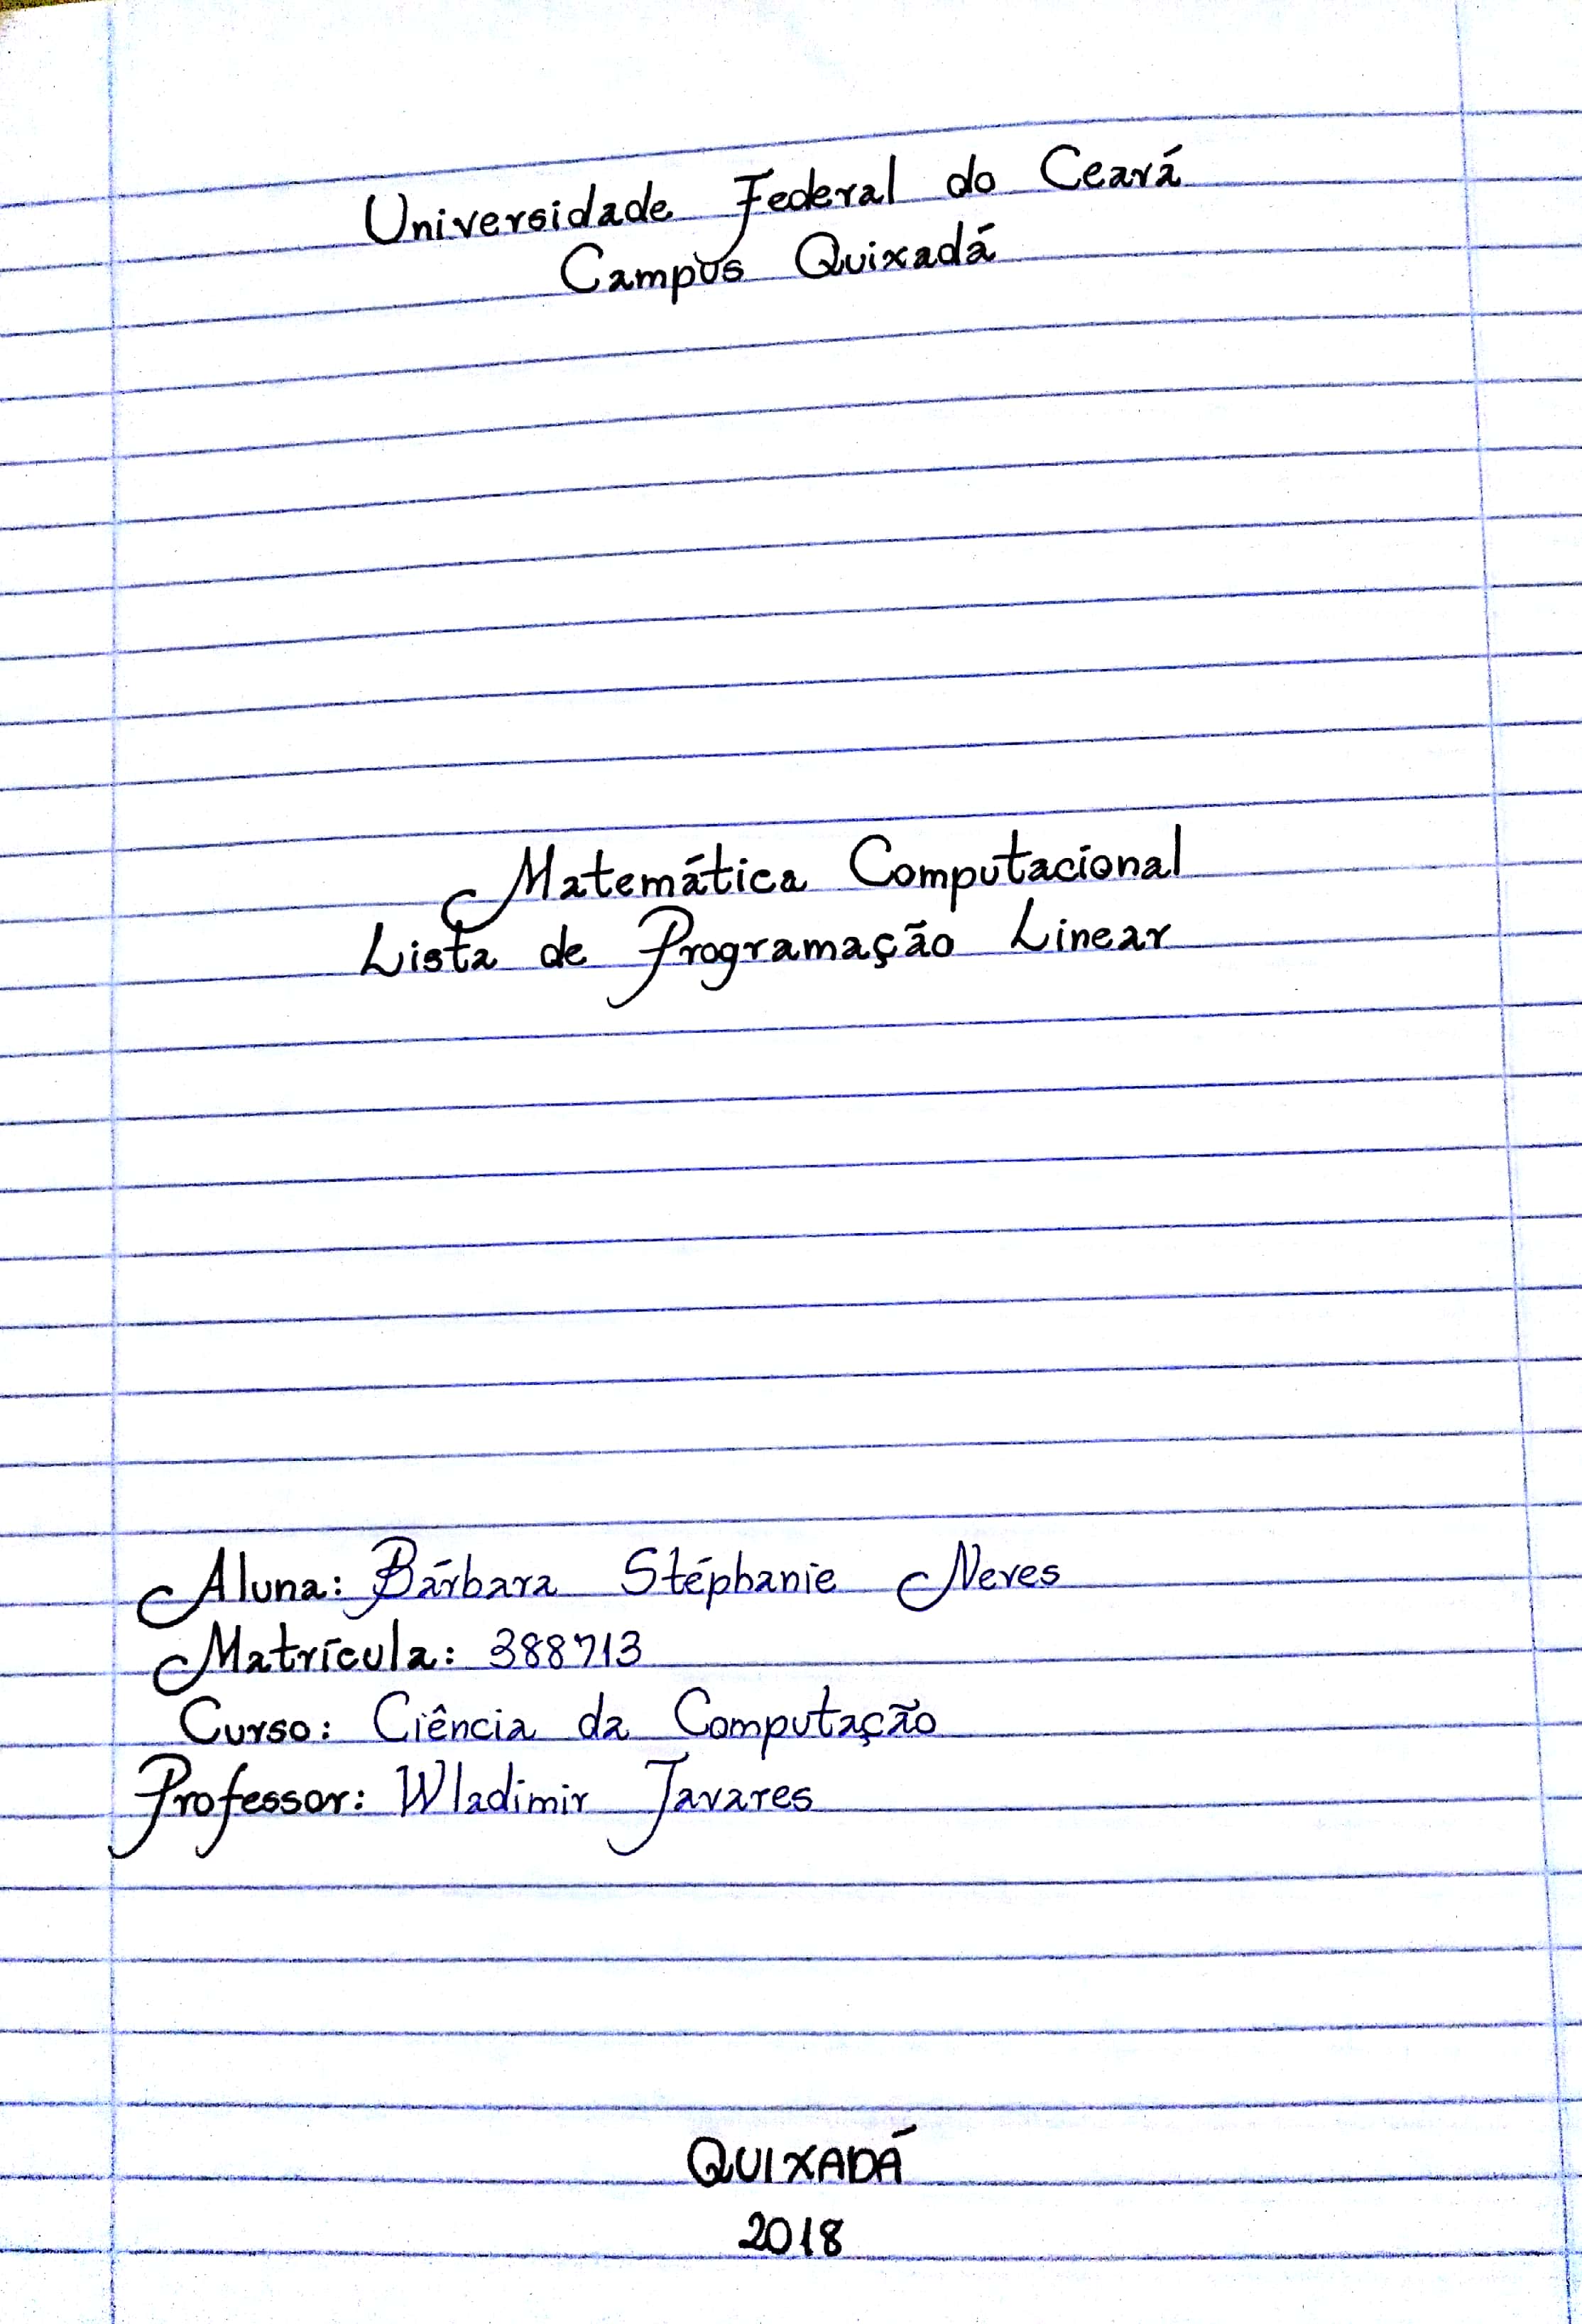 Universidade Federal do Ceará
Campus Quixadá
Matemática Computacional
Lista de Programação Linear
Aluna: Bárbara Stéphanie Neves
Matrícula: 388713
Curso: Ciência da Computação
Professor: Wladimir Tavares
QUIXADÁ
2018